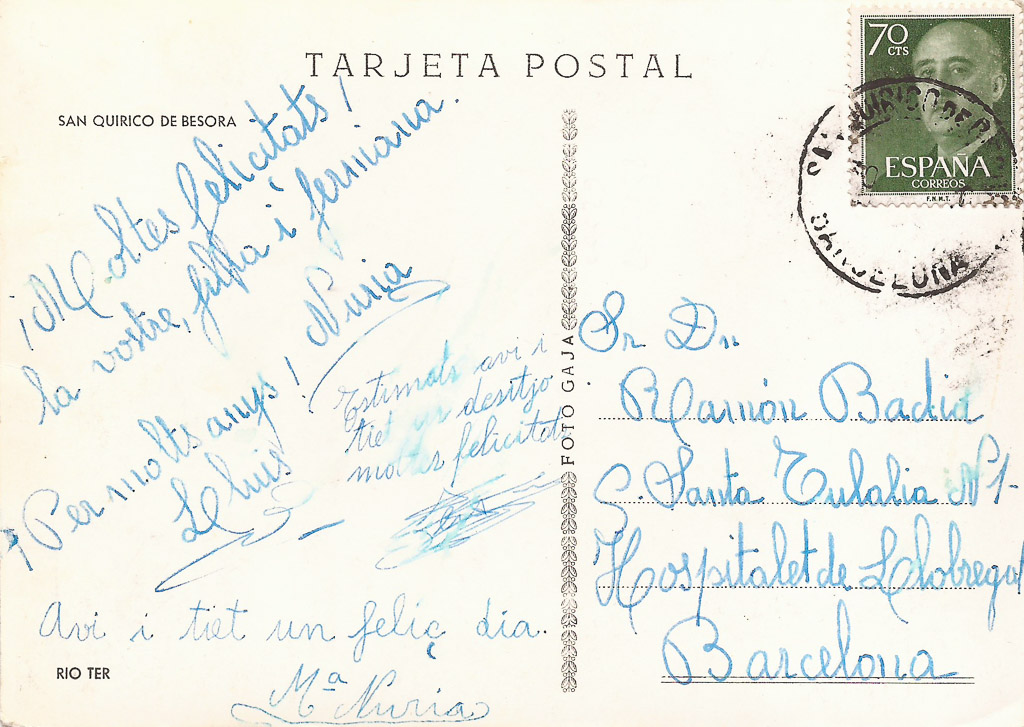 TARJETA POSTAL
SAN QUIRICO DE BESORA
¡Moltes felicitats!
la vostre, filla i germana.
Nuria
¡Per molts anys!
Lluis
Estimats avi i
tiet us desitjo
moltes felicitats
Avi i tiet un feliç dia.
Mª Nuria
RIO TER
FOTO GAJA
70
CTS
ESPAÑA
CORREOS
F.N.M.T.
BARCELONA
Sr. Dn.
Ramón Badia
C. Santa Eulalia Nº 1-
Hospitalet de Llobregat
Barcelona